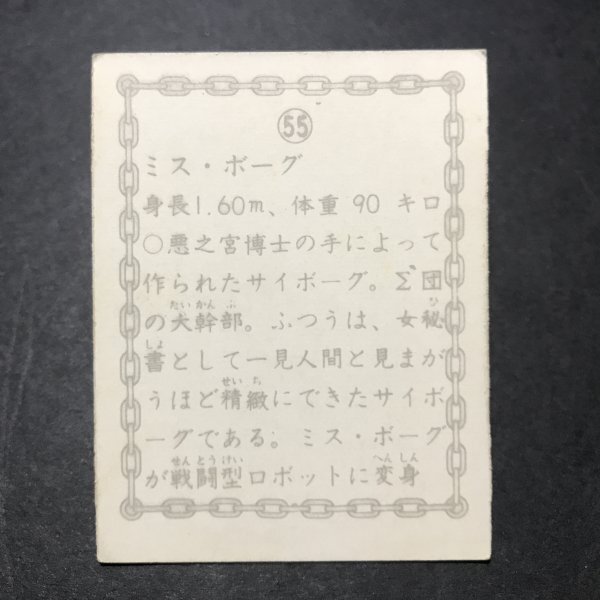 55
ミス・ボーグ
身長1.60m、体重 90 キロ
○悪之宮博士の手によって
作られたサイボーグ。Σ団
の大幹部。ふつうは、女秘
書として一見人間と見まが
うほど精緻にできたサイボ
ーグである。ミス・ボーグ
が戦闘型ロボットに変身